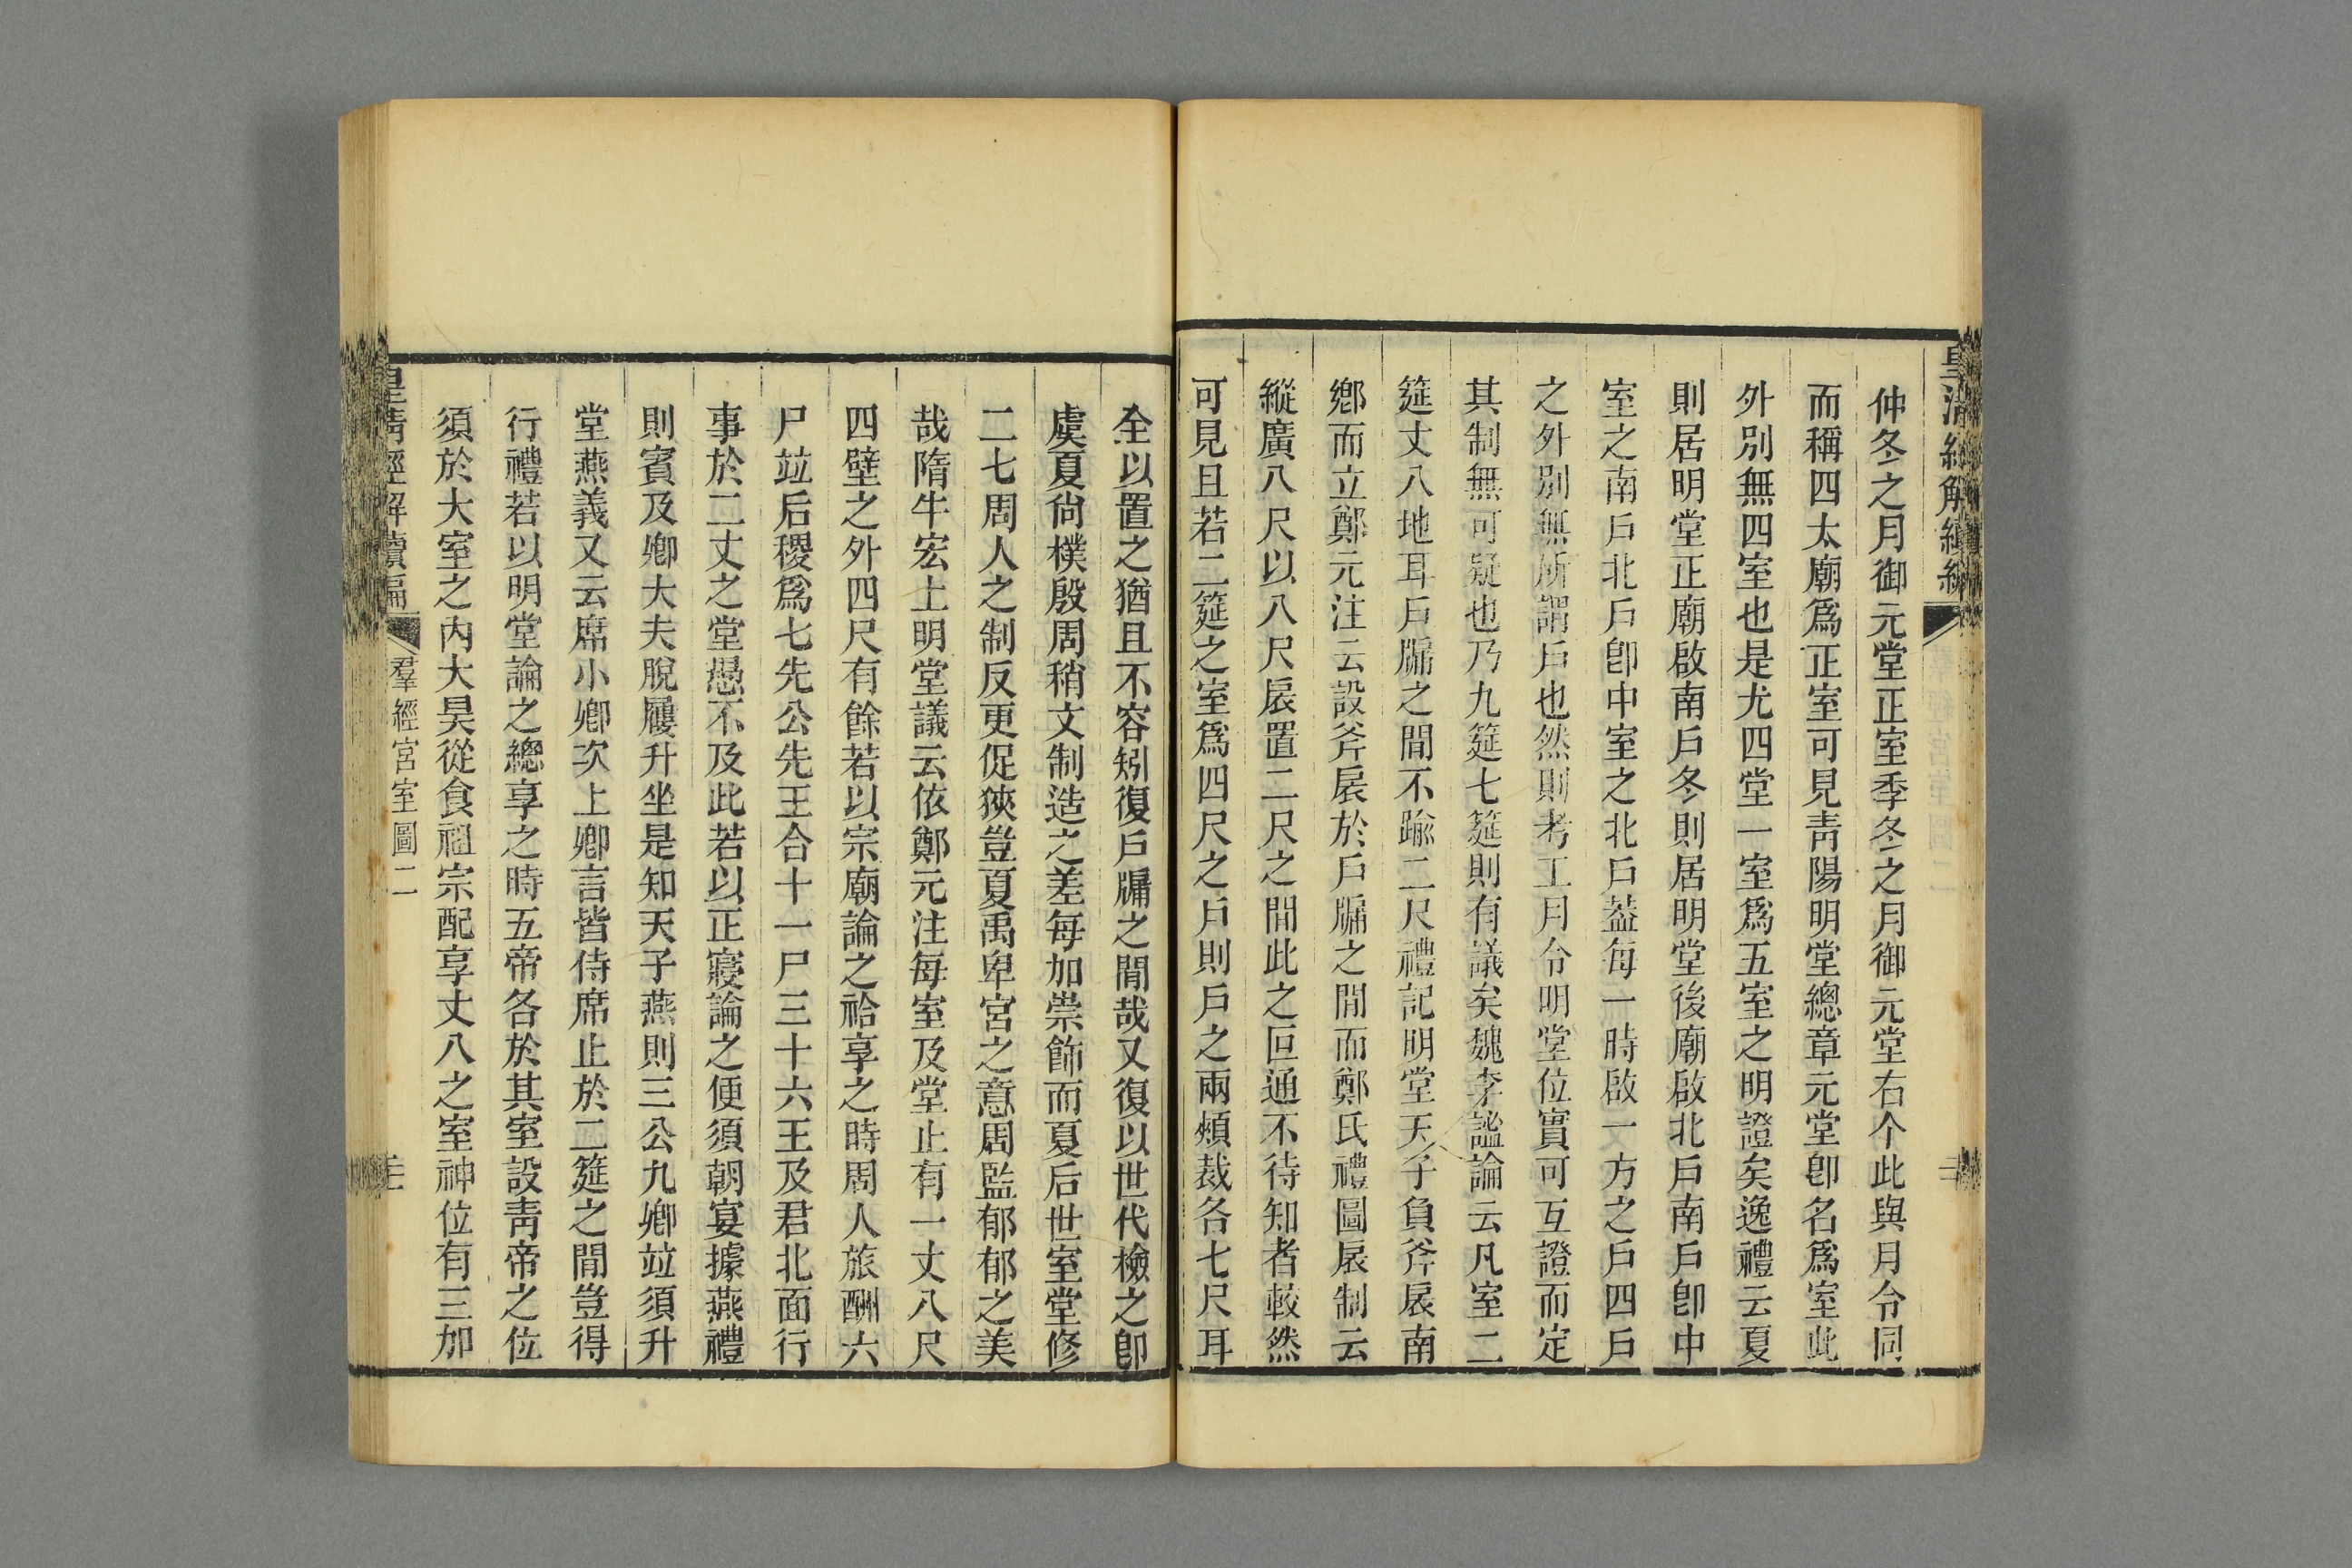 皇清經解續編
仲冬之月御元堂正室季冬之月御元堂右个此與月令同
而稱四太廟爲正室可見靑陽明堂總章元堂卽名爲室此
外別無四室也是尤四堂一室爲五室之明證矣逸禮云夏
則居明堂正廟啟南戶冬則居明堂後廟啟北戶南戶卽中
室之南戶北戶卽中室之北戶葢每一時啟一方之戶四戶
之外別無所謂戶也然則考工月令明堂位實可互證而定
其制無可疑也乃九筵七筵則有議矣魏李謐論云凡室二
筵丈八地耳戶牖之間不踰二尺禮記明堂天子負斧扆南
鄉而立鄭元注云設斧扆於戶牖之閒而鄭氏禮圖扆制云
縱廣八尺以八尺扆置二尺之間此之叵通不待知者較然
可見且若二筵之室爲四尺之戶則戶之兩頰裁各七尺耳
全以置之猶且不容矧復戶牖之閒哉又復以世代檢之卽
虞夏尙樸殷周稍文制造之差每加崇飾而夏后世室堂修
二七周人之制反更促狹豈夏禹卑宮之意周監郁郁之美
哉隋牛宏上明堂議云依鄭元注每室及堂止有一丈八尺
四壁之外四尺有餘若以宗廟論之祫享之時周人旅酬六
尸竝后稷爲七先公先王合十一尸三十六王及君北面行
事於二丈之堂愚不及此若以正寢論之便須朝宴據燕禮
則賓及卿大夫脫屨升坐是知天子燕則三公九卿竝須升
堂燕義又云席小卿次上卿言皆侍席止於二筵之間豈得
行禮若以明堂論之總享之時五帝各於其室設靑帝之位
須於大室之內大昊從食祖宗配享丈八之室神位有三加
皇淸經解續編
羣經宮室圖二